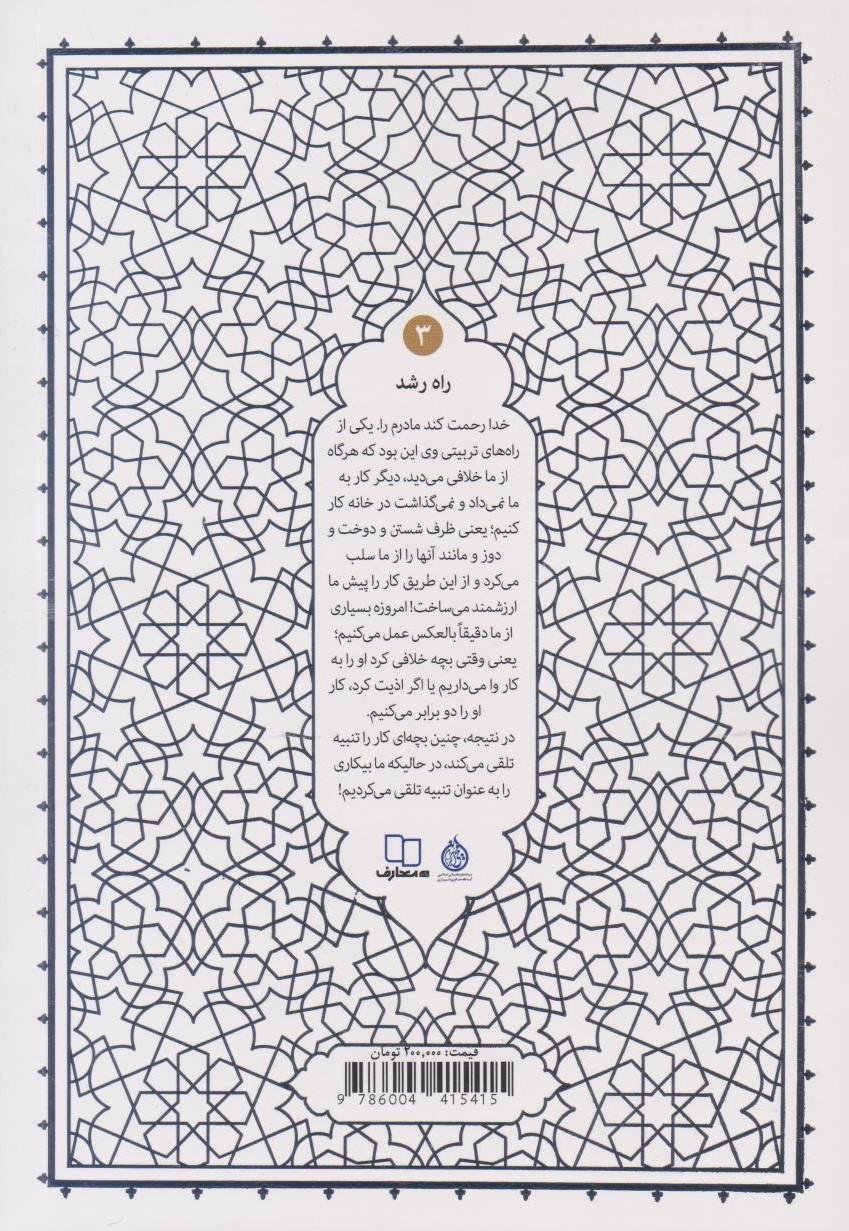 ۳
راه رشد
خدا رحمت کند مادرم را. یکی از
راه‌های تربیتی وی این بود که هرگاه
از ما خلافی می‌دید، دیگر کار به
ما نمی‌داد و نمی‌گذاشت در خانه کار
کنیم؛ یعنی ظرف شستن و دوخت و
دوز و مانند آنها را از ما سلب
می‌کرد و از این طریق کار را پیش ما
ارزشمند می‌ساخت! امروزه بسیاری
از ما دقیقاً بالعکس عمل می‌کنیم؛
یعنی وقتی بچه خلافی کرد او را به
کار وا می‌داریم یا اگر اذیت کرد، کار
او را دو برابر می‌کنیم.
در نتیجه، چنین بچه‌ای کار را تنبیه
تلقی می‌کند، در حالیکه ما بیکاری
را به عنوان تنبیه تلقی می‌کردیم!
معارف
قیمت: ۲۰۰,۰۰۰ تومان
9 786004 415415